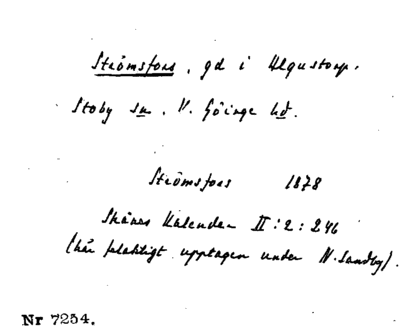 Strömsfors, gd i Algustorp,
Stoby sn, V. Göinge hd.
Strömsfors 1878
Skånes Kalender II:2:246
(här felaktigt upptagen under N. Sandby).
Nr 7254.